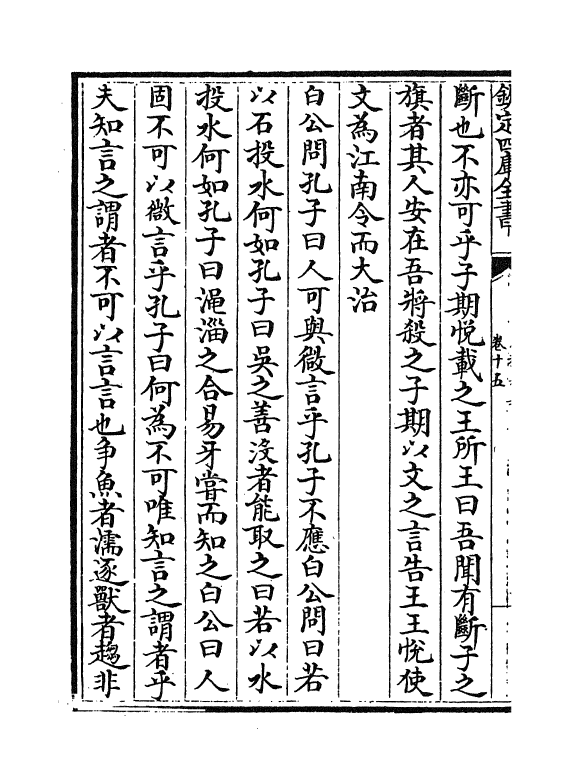 欽定四庫全書
卷十五
斷也不亦可乎子期悅載之王所王曰吾聞有斷子之
旗者其人安在吾將殺之子期以文之言告王王悅使
文為江南令而大治
白公問孔子曰人可與微言乎孔子不應白公問曰若
以石投水何如孔子曰吳之善沒者能取之曰若以水
投水何如孔子曰澠淄之合易牙嘗而知之白公曰人
固不可以微言乎孔子曰何為不可唯知言之謂者乎
夫知言之謂者不可以言言也爭魚者濡逐獸者趨非